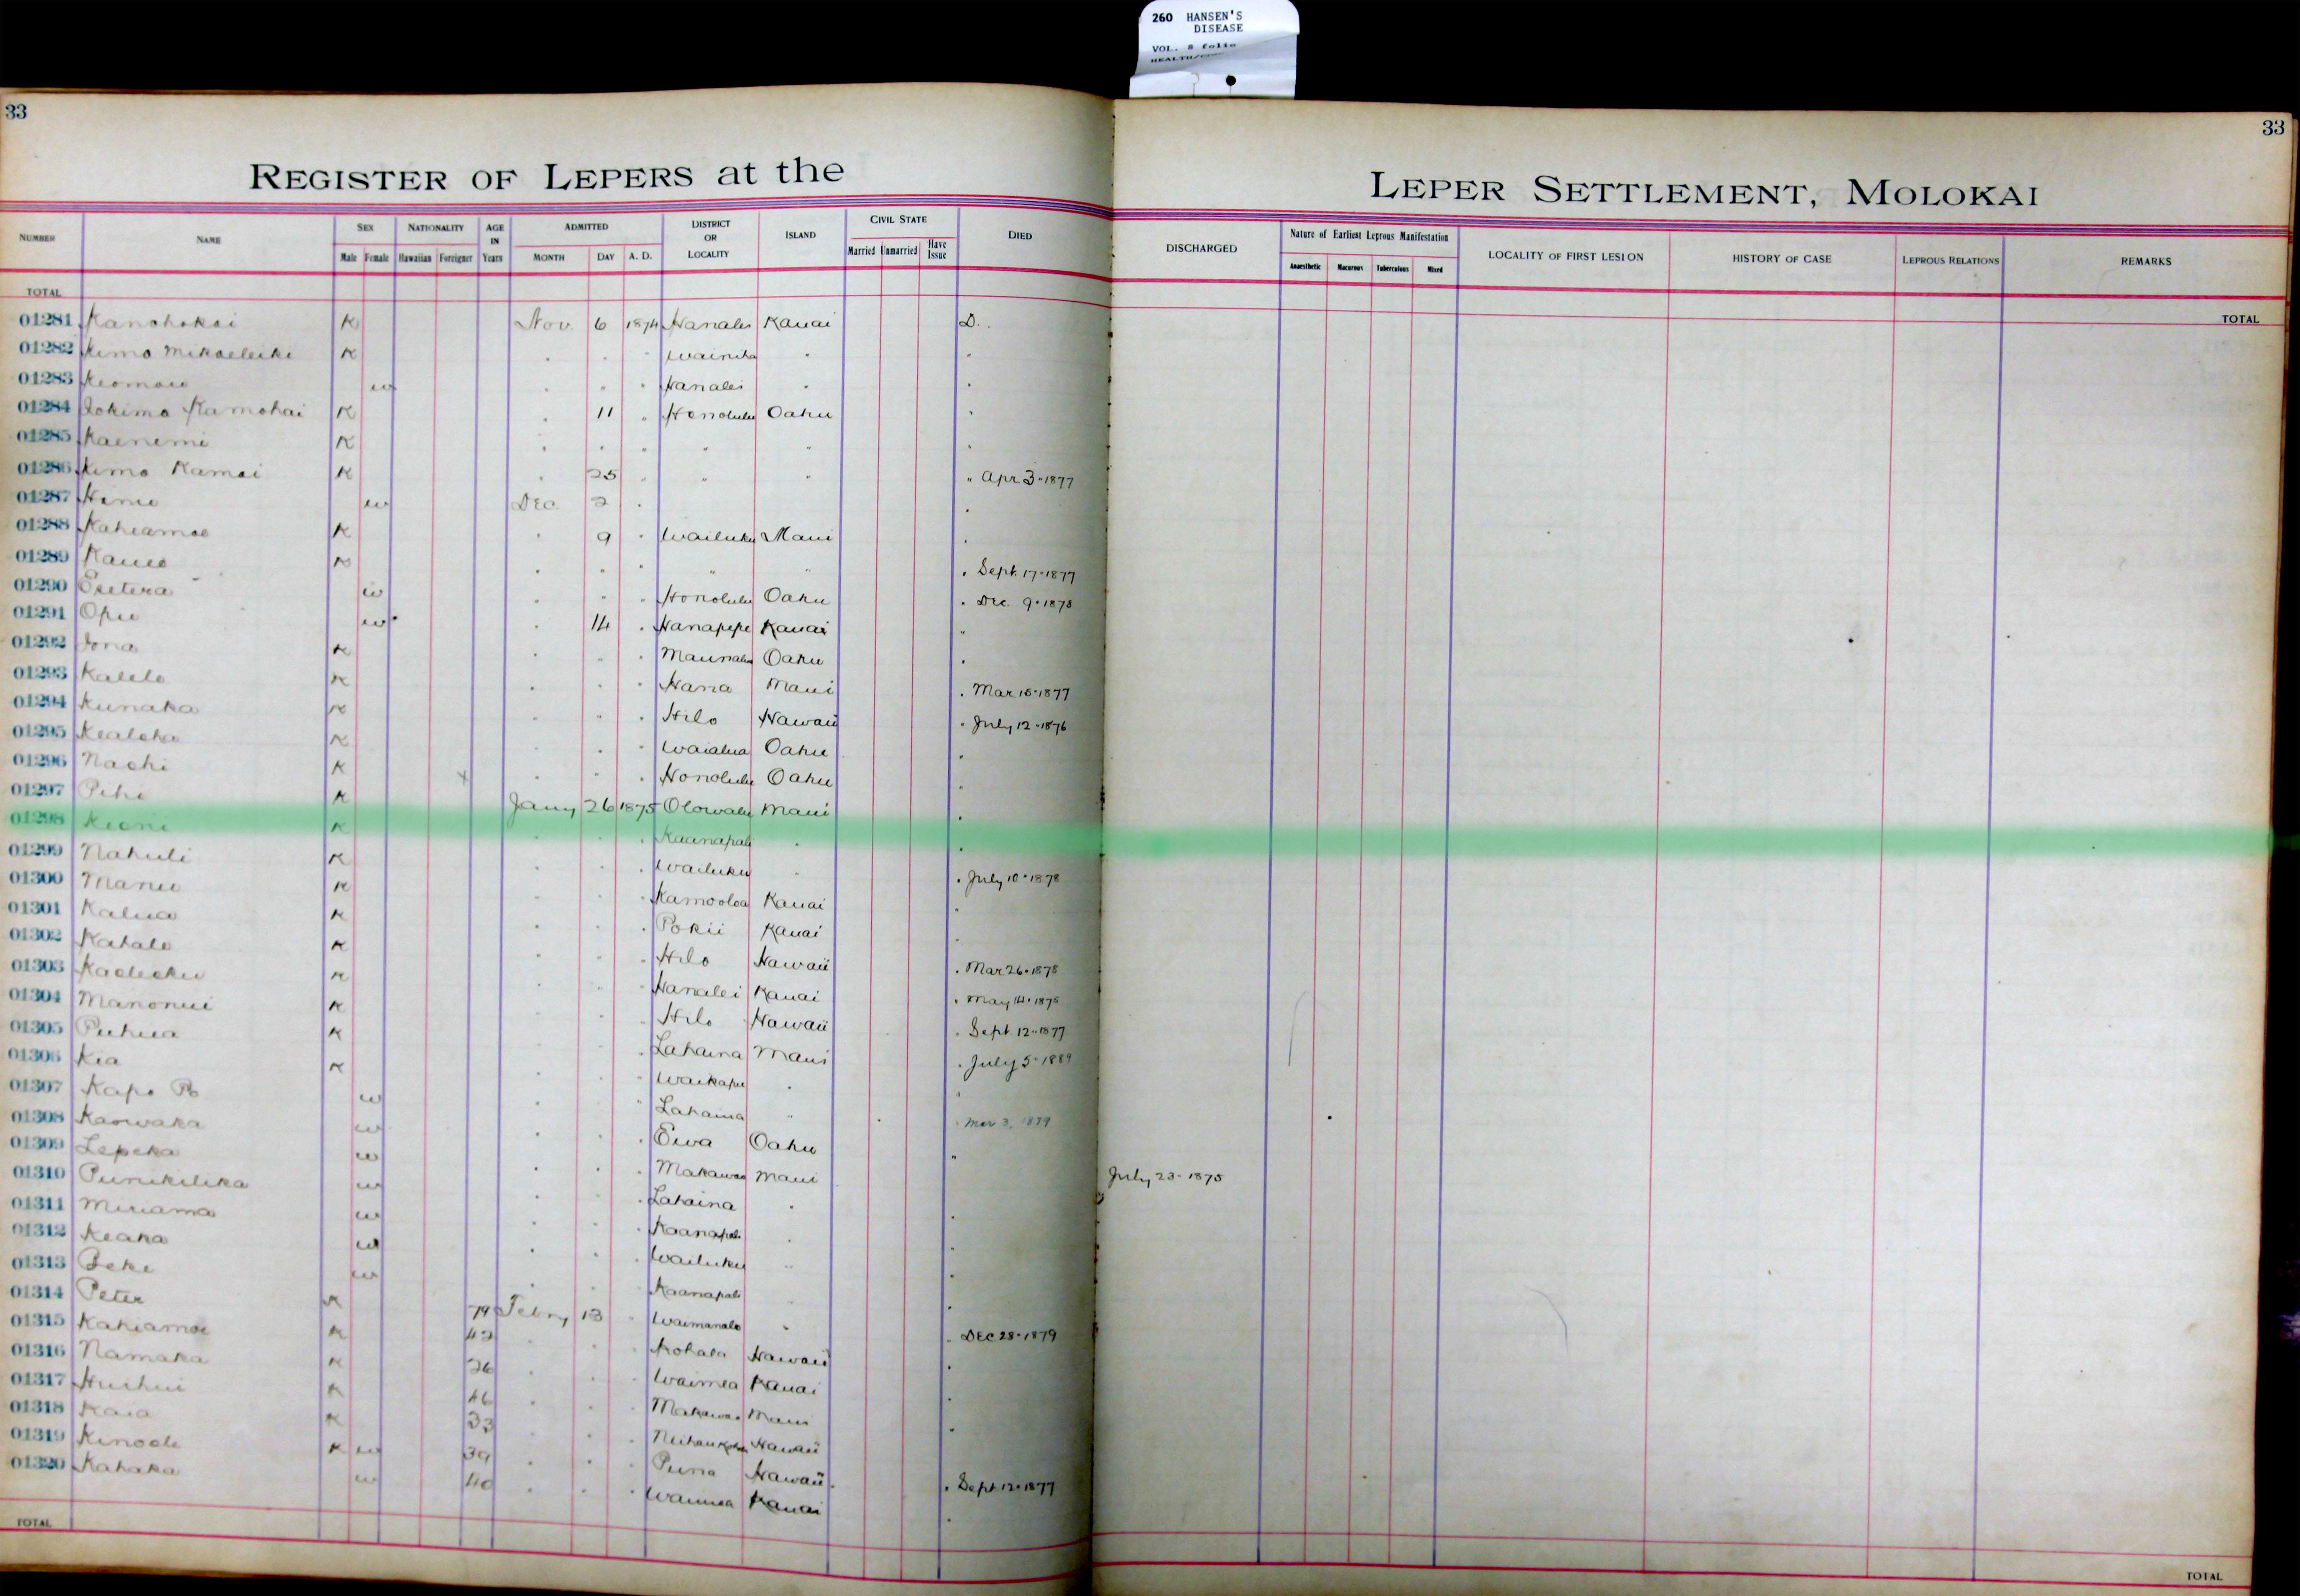 260 HANSEN'S
DISEASE
VOL. 8 folio
33
33
REGISTER OF LEPERS at the LEPER SETTLEMENT, MOLOKAI
NUMBER NAME SEX NATIONALITY AGE IN Years ADMITTED DISTRICT OR LOCALITY ISLAND CIVIL STATE DIED DISCHARGED Nature of Earliest Leprous Manifestation LOCALITY OF FIRST LESION HISTORY OF CASE LEPROUS RELATIONS REMARKS
Male Female Hawaiian Foreigner MONTH DAY A. D. Married Unmarried Have Issue Anaesthetic Macurous Tuberculous Mixed
TOTAL TOTAL
01281 Kanohokai K Nov. 6 1874 Hanalei Kauai D.
01282 Kimo Mikaeleiki K " " " Wainiha " "
01283 Keomau w " " " Hanalei " "
01284 Iokimo Kamohai K " 11 " Honolulu Oahu "
01285 Kaenemi K " " " " " "
01286 Kimo Kamai K " 25 " " " " Apr 3-1877
01287 w Dec. 2 " "
01288 Kahiamoe K " 9 " Wailuku Maui "
01289 K " " " " " " Sept. 17-1877
01290 w " " " Honolulu Oahu " Dec. 9-1878
01291 Opu w " 14 " Hanapepe Kauai "
01292 Iona K " " " Maunalua Oahu "
01293 Kalelo K " " " Hana Maui " Mar 15-1877
01294 Kunaka K " " " Hilo Hawaii " July 12-1876
01295 Kealoha K " " " Waialua Oahu "
01296 Naohi K x " " " Honolulu Oahu "
01297 Pihi K Jany 26 1875 Olowalu Maui "
01298 Keoni K " " " Kaanapali " "
01299 Nahuli K " " " Wailuku " " July 10-1878
01300 Manu K " " " Kamooloa Kauai "
01301 Kalua K " " " Pokii Kauai "
01302 Kahalo K " " " Hilo Hawaii " Mar 26-1878
01303 K " " " Hanalei Kauai " May 14-1875
01304 Manonui K " " " Hilo Hawaii " Sept 12-1877
01305 Puhua K " " " Lahaina Maui " July 5-1889
01306 Kia K " " " Waikapu " "
01307 Kapo w " " " Lahaina " " Mar 3, 1879
01308 Kaowaka w " " " Ewa Oahu "
01309 Lepeka w " " " Makawao Maui July 23-1875
01310 Punikilika w " " " Lahaina " "
01311 Miriama w " " " Kaanapali " "
01312 Keaka w " " " Wailuku " "
01313 Beke w " " " Kaanapali " "
01314 Peter K 79 Febry 13 " Waimanalo " " Dec 28-1879
01315 Kahiamoe K 42 " " " Kohala Hawaii "
01316 Namaka K 26 " " " Waimea Kauai "
01317 Huihui K 46 " " " Makawao Maui "
01318 Kaia K 33 " " " Hawaii
01319 Kinoole K w 39 " " " Puna Hawaii " Sept 12-1877
01320 Kahaka w 40 " " " Waimea Kauai "
TOTAL TOTAL